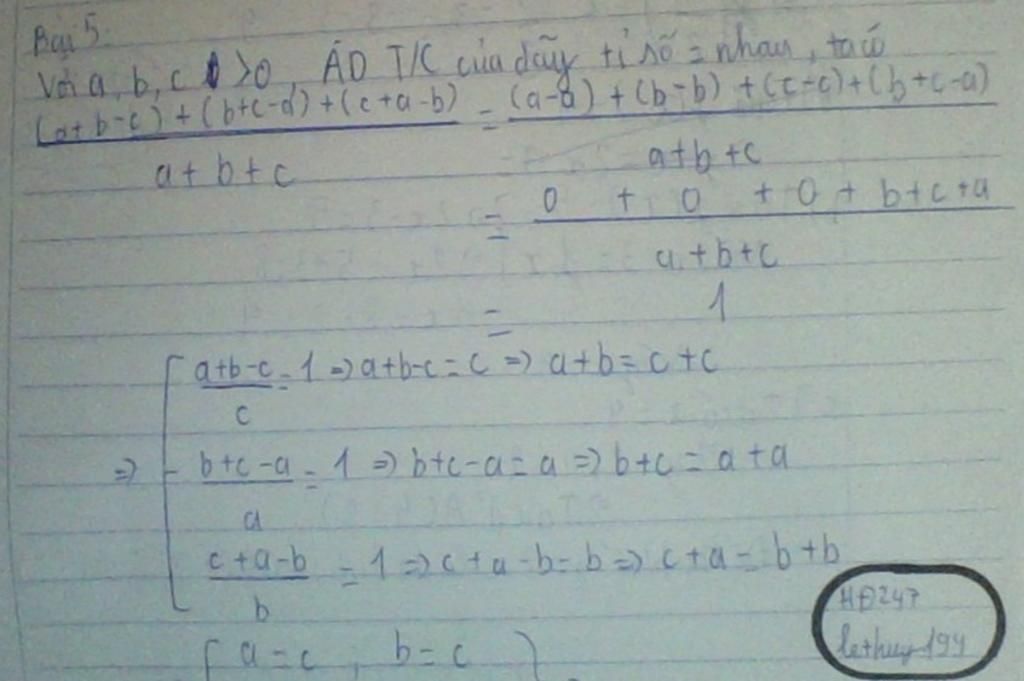 Bài 5.
Với a, b, c >0, ÁD T/C của dãy tỉ số = nhau, ta có
(a+b-c) + (b+c-a) + (c+a-b) = (a-a) + (b-b) + (c-c) + (b+c-a)
a+b+c a+b+c
= 0 + 0 + 0 + b+c+a
a+b+c
= 1
a+b-c = 1 => a+b-c = c => a+b = c+c
c
=> b+c-a = 1 => b+c-a = a => b+c = a+a
a
c+a-b = 1 => c+a-b = b => c+a = b+b
b
HĐ247
lethuy194
a=c , b=c